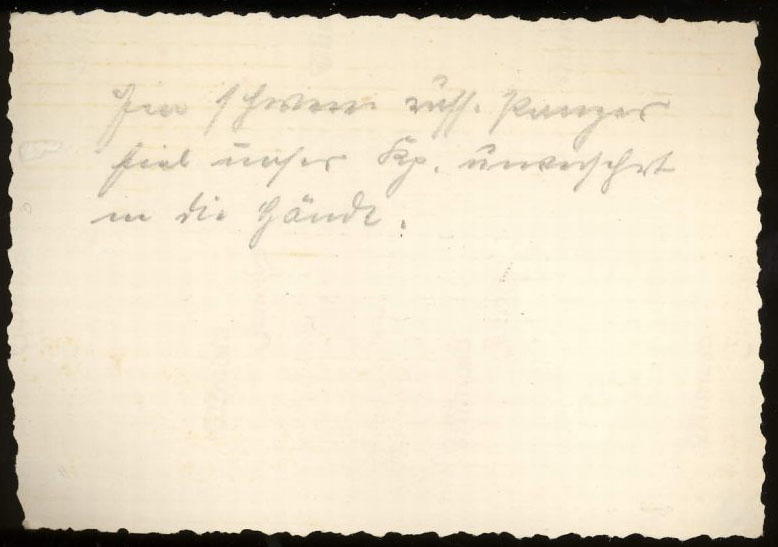 Ein schwerer russ. Panzer
fiel unser Kp. unversehrt
in die Hände.